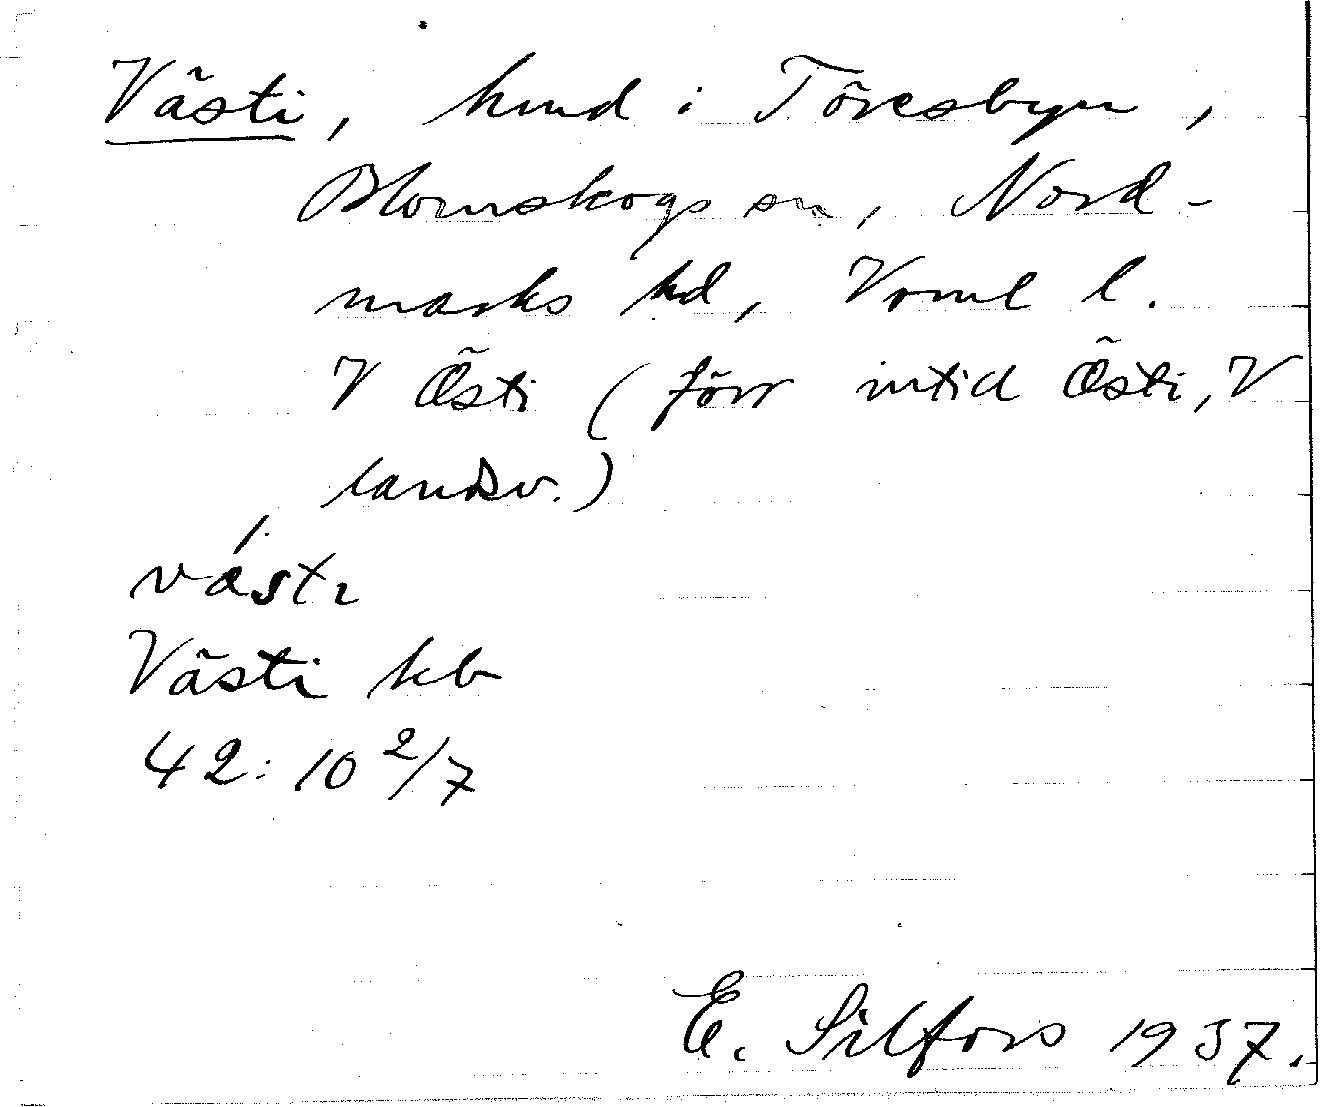 Västi, hmd i Töresbyn,
Blomskogs sn, Nord-
marks hd, Vrml l.
V Östi (förr intid Östi, V
landsv.)
västɩ
Västi kb
42:10 2/7
E. Silfors 1937.